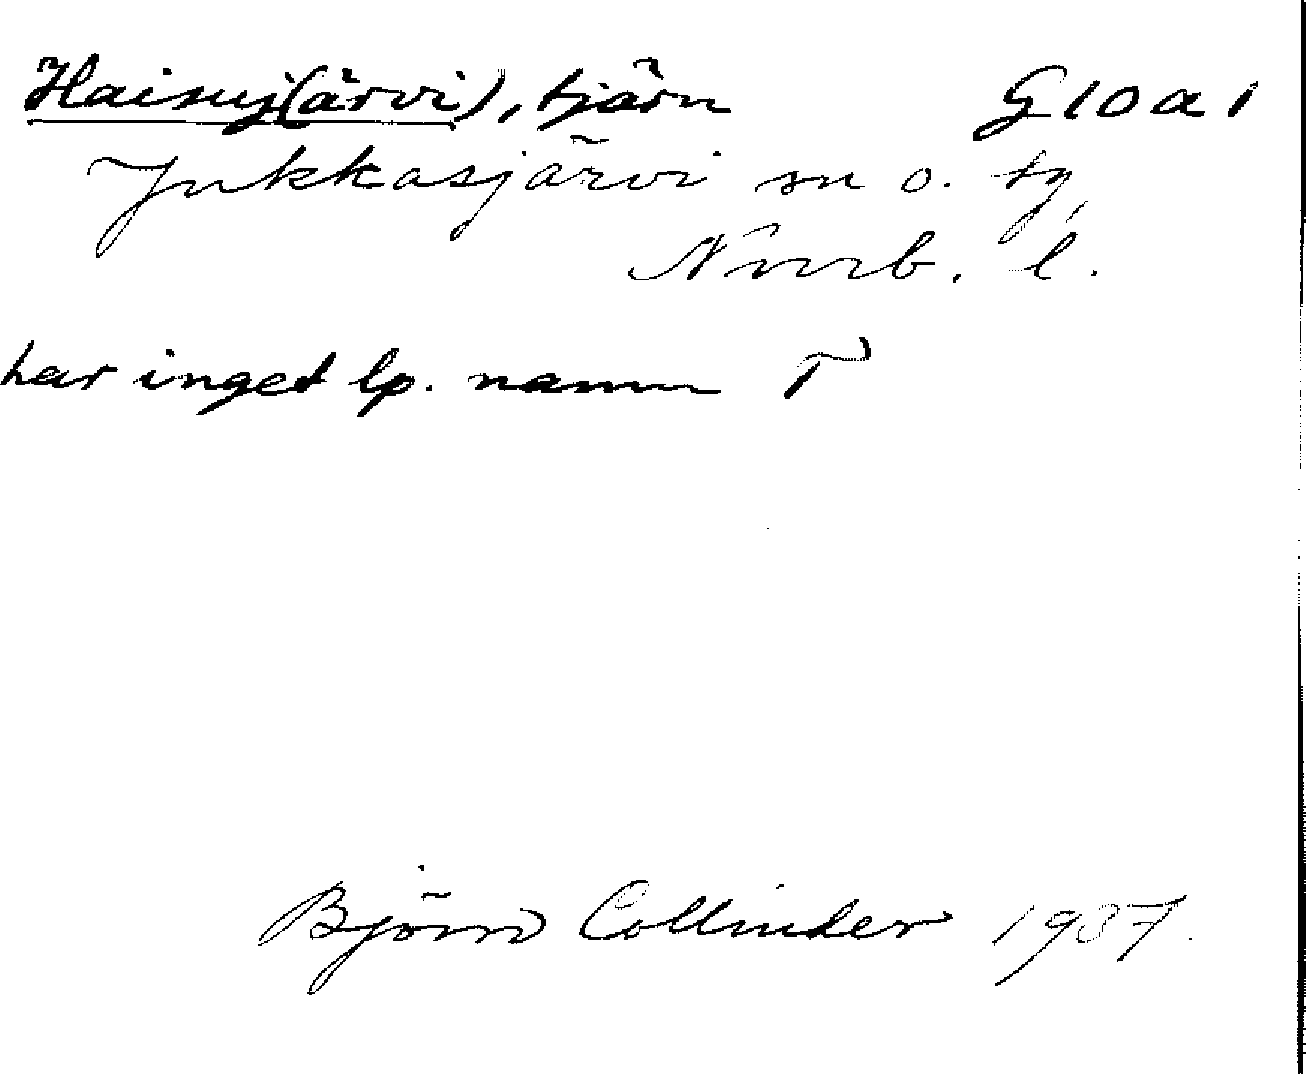 Haisuj(ärvi), tjärn G 10 a 1
Jukkasjärvi sn o. tg,
Norrb. l.
har inget lp. namn T
Björn Collinder 1937.